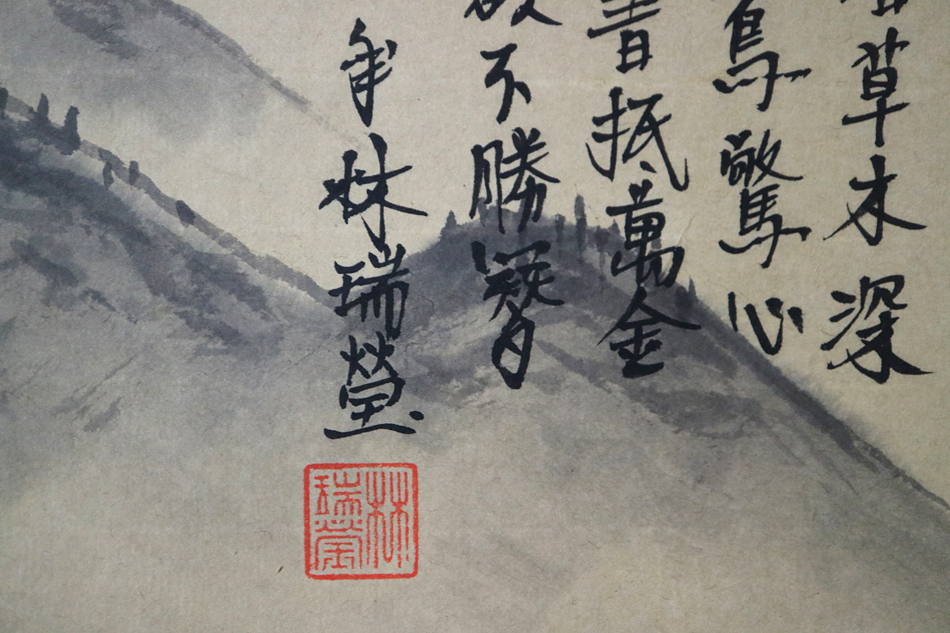 草木深
鳥驚心
書抵萬金
不勝簪
年林瑞瑩
林瑞瑩